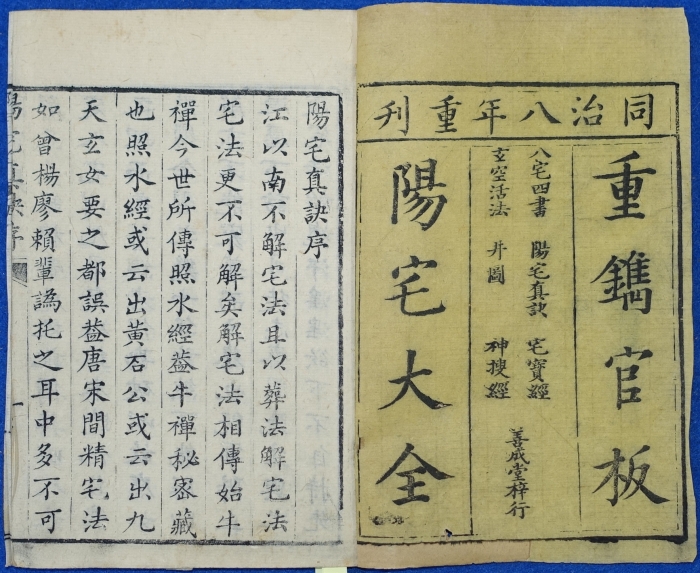 同治八年重刊
重鐫官板
八宅四書 陽宅真訣 宅寶經
玄空活法 并圖 神搜經
善成堂梓行
陽宅大全
陽宅真訣序
江以南不解宅法且以葬法解宅法
宅法更不可解矣解宅法相傳始牛
禪今世所傳照水經葢牛禪秘密藏
也照水經或云出黃石公或云出九
天玄女要之都誤葢唐宋間精宅法
如曾楊廖賴輩譌托之耳中多不可
陽宅真訣序
一